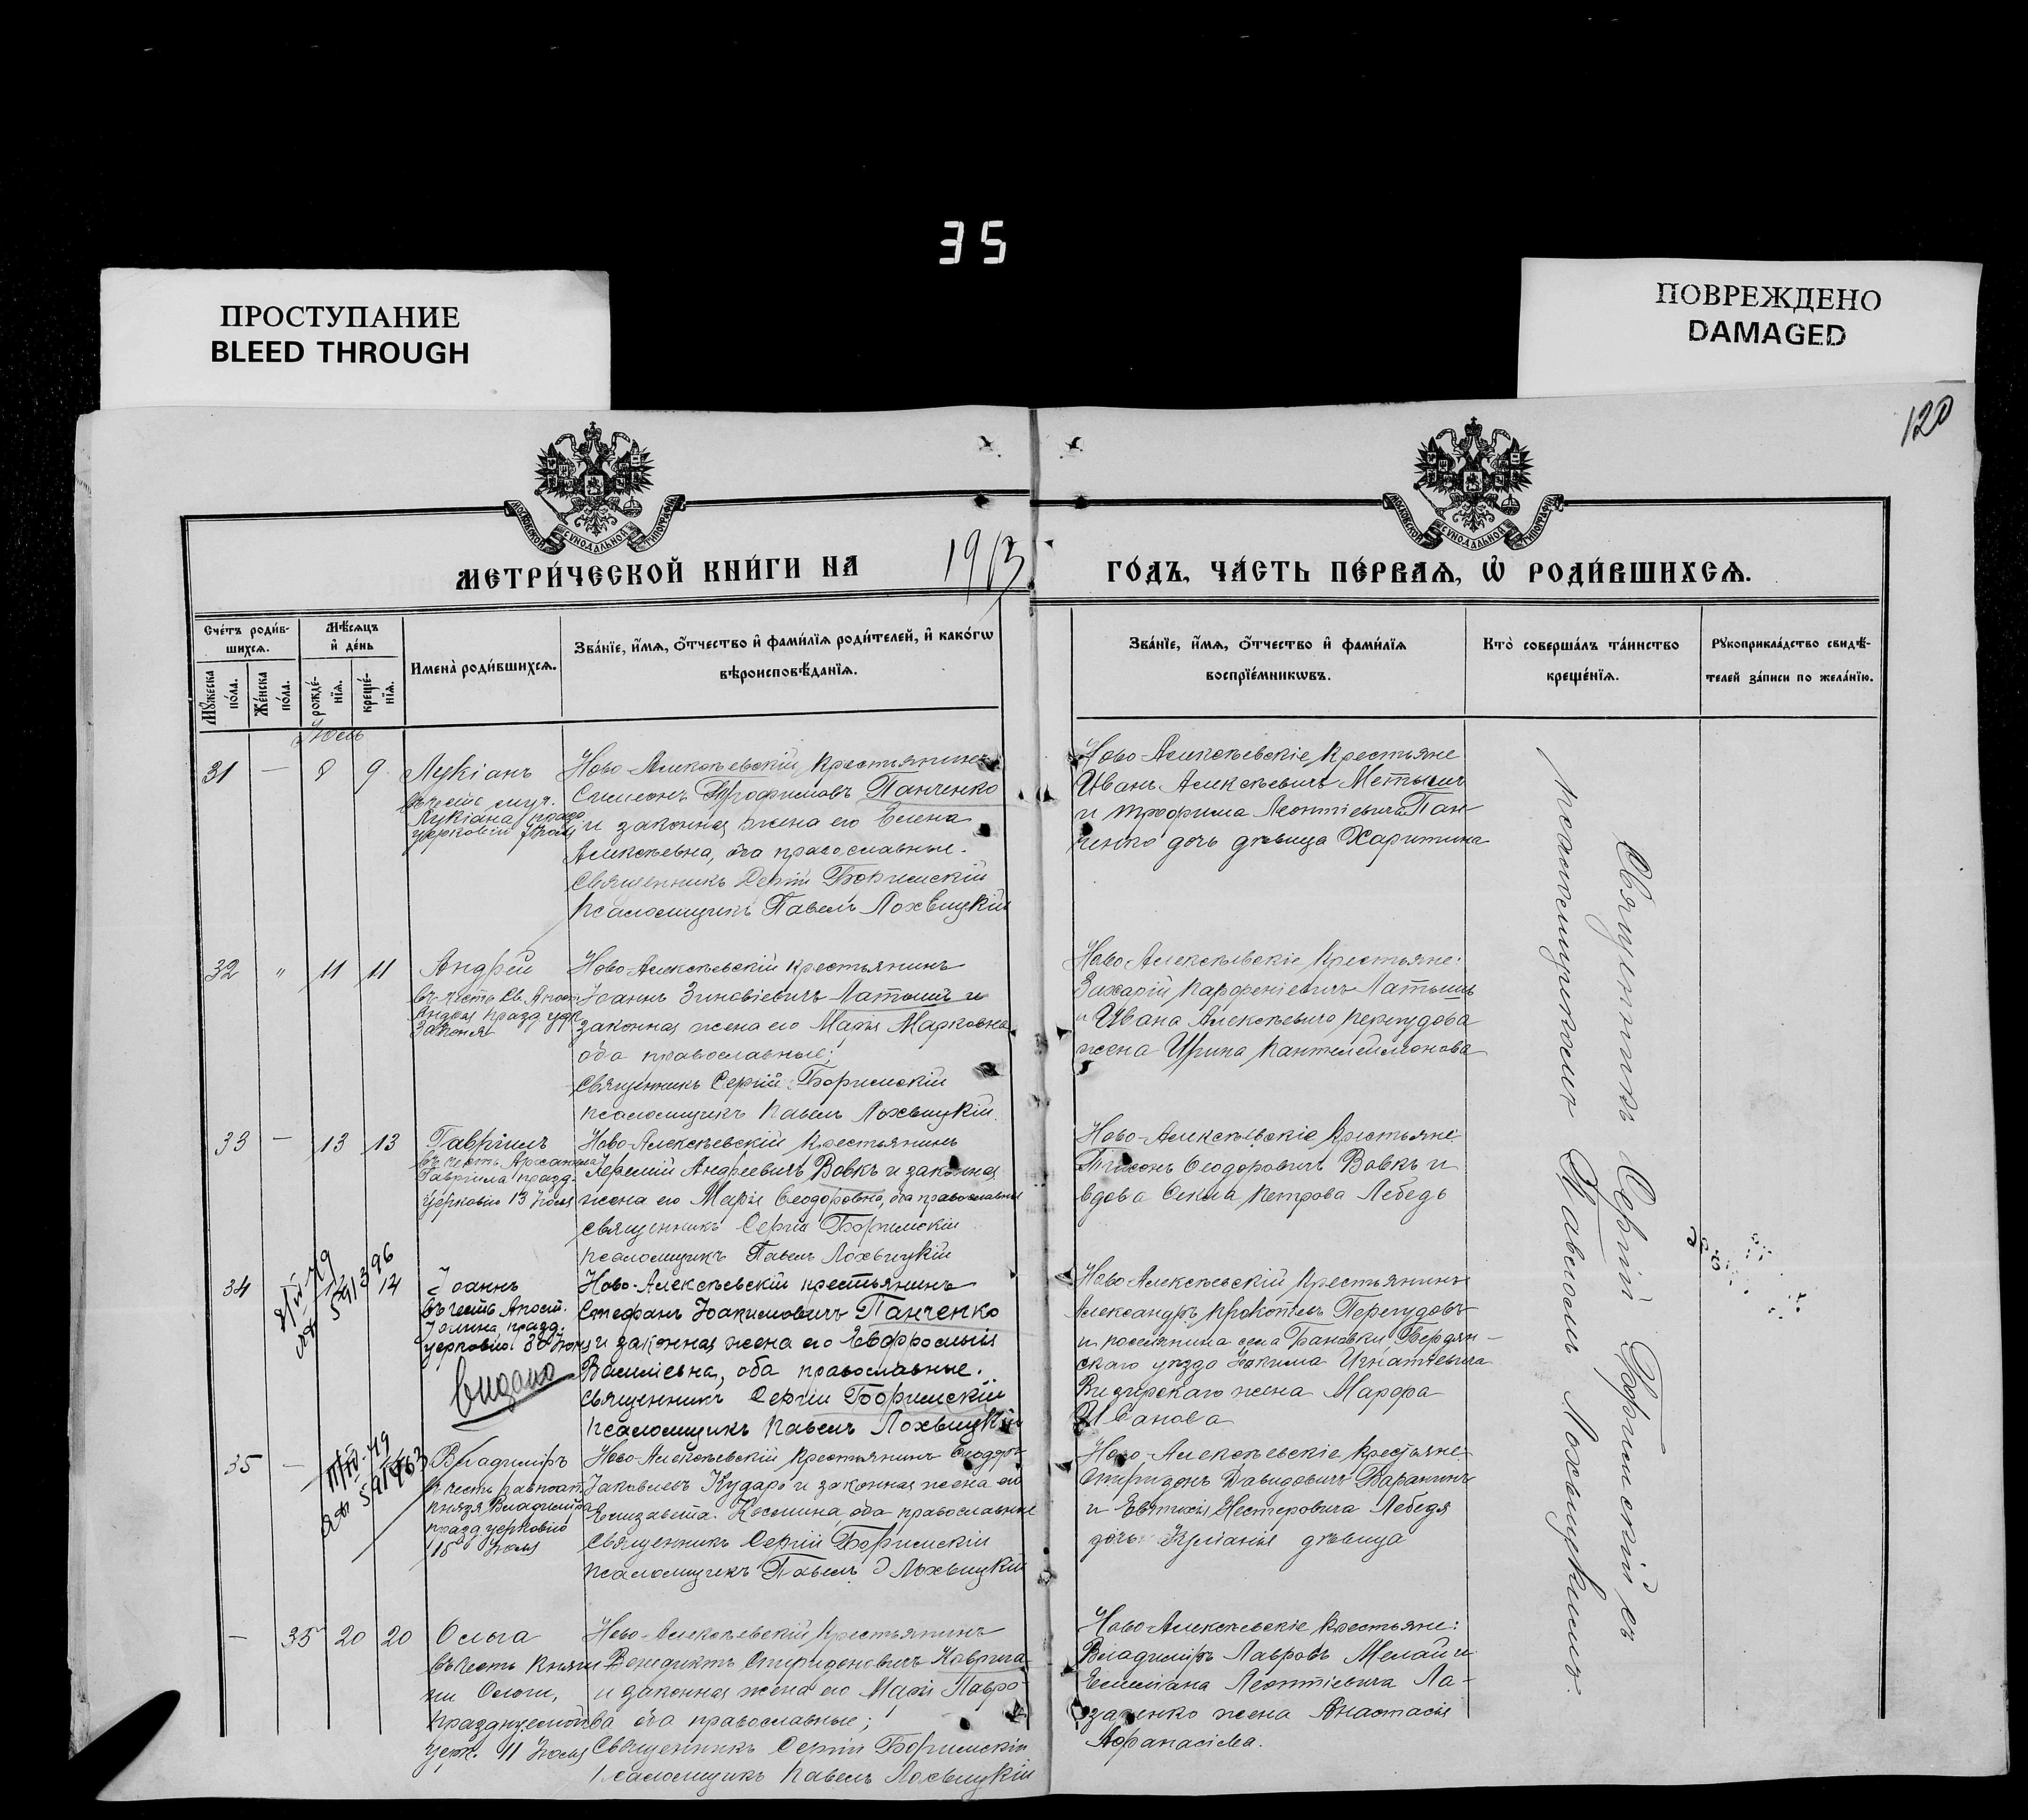 35
ПРОСТУПАНИЕ
BLEED THROUGH
ПОВРЕЖДЕНО
DAMAGED
120
МОСКОВСКОЙ СУНОДАЛЬНОЙ ТИПОГРАФІИ
МОСКОВСКОЙ СУНОДАЛЬНОЙ ТИПОГРАФІИ
МЕТРИ́ЧЕСКОЙ КНИ́ГИ НА 1913
ГО́ДЪ, ЧА́СТЬ ПЕ́РВАѦ, Ѡ РОДИ́ВШИХСѦ.
Сче́тъ роди́в-
шихсѧ.
Мꙋ́жеска
по́ла.
Же́нска
по́ла.
Мѣ́сѧцъ
и҆ де́нь
рожде́-
нїѧ.
креще́-
нїѧ.
Имена̀ роди́вшихсѧ.
Зва́нїе, и҆́мѧ, о҆́тчество и҆ фами́лїѧ роди́телей, и҆ како́гѡ
вѣроисповѣ́данїѧ.
Зва́нїе, и҆́мѧ, о҆́тчество и҆ фами́лїѧ
воспрїе́мникѡвъ.
Кто̀ соверша́лъ та́инство
креще́нїѧ.
Рꙋкоприкла́дство свидѣ́-
телей за́писи по жела́нїю.
Іюль
31 — 8 9 Лукіанъ
въ честь муч.
Лукіана празд.
церковію Іюля
Ново-Алексѣевскій крестьянинъ
Симеонъ Трофимовъ Панченко
и законная жена его Елена
Алексѣевна, оба православные.
Священникъ Сергій Боримскій
Псаломщикъ Павелъ Лохвицкій
Ново-Алексѣевскіе крестьяне
Иванъ Алексѣевичъ
и Трофима Леонтіевича Пан-
ченко дочь дѣвица Харитина
32 " 11 11 Андрей
въ честь Св. Апост.
Андрея празд. церк.
Ново-Алексѣевскій крестьянинъ
Іоаннъ Зиновіевичъ Латышъ и
законная жена его Марія Марковна
оба православные;
Священникъ Сергій Боримскій
псаломщикъ Павелъ Лохвицкій.
Ново-Алексѣевскіе крестьяне:
Захарій Парфеніевичъ Латышъ
и Ивана Алексѣевича Перегудова
жена Ирина Пантелеимонова
33 — 13 13 Гавріилъ
въ честь Архангела
Гавріила празд.
церковію 13 Іюля
Ново-Алексѣевскій крестьянинъ
Іеремій Андреевичъ Вовкъ и законная
жена его Марія Ѳеодоровна, оба православные
священникъ Сергій Боримскій
псаломщикъ Павелъ Лохвицкій
Ново-Алексѣевскіе крестьяне
Тихонъ Ѳеодоровичъ Вовкъ и
вдова Ѳекла Петрова Лебедь
34 14 Іоаннъ
въ честь Апост.
празд.
церковію 30 Іюня
видано
Ново-Алексѣевскій крестьянинъ
Стефанъ Іоакимовичъ Панченко
и законная жена его Евфросинія
Василіевна, оба православные.
Священникъ Сергій Боримскій
псаломщикъ Павелъ Лохвицкій
Ново-Алексѣевскій крестьянинъ
Александръ Перегудовъ
и поселянина села Бановки, Бердян-
скаго уѣзда Іоакима Игнатіевича
жена Марфа
Иванова
35 — Владиміръ
въ честь равноап.
князя Владиміра
празд. церковію
15 Іюля
Ново-Алексѣевскій крестьянинъ Ѳеодоръ
Іаковлевъ и законная жена его
Елизавета оба православные
Священникъ Сергій Боримскій
псаломщикъ Павелъ Лохвицкій
Ново-Алексѣевскіе крестьяне
Спиридонъ Давидовичъ
и Евтихія Нестеровича Лебедя
дочь дѣвица
— 35 20 20 Ольга
въ честь Княги-
ни Ольги,
празднуемой
церк. 11 Іюля
Ново-Алексѣевскій крестьянинъ
Венедиктъ Спиридоновичъ
и законная жена его Марія Лавро-
ва оба православные;
Священникъ Сергій Боримскій
Псаломщикъ Павелъ Лохвицкій
Ново-Алексѣевскіе крестьяне:
Владиміръ Лавровъ и
Емиліана Леонтіевича Ла-
заренко жена Анастасія
Афанасіева.
Священникъ Сергій Боримскій съ
псаломщикомъ Павломъ Лохвицкимъ.